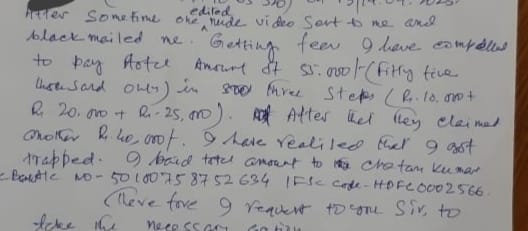 After Sometime one edited nude video Sent to me and
black mailed me. Getting feer I have compelled
to pay Total Amount of 55.000/- (Fifty five
thousand only) in three Steps (R. 10.000 +
R. 20.000 + R. 25,000). After that they claimed
another R 40,000/. I have realised that I got
trapped. I paid total amount to Chetan Kumar
A/c NO - 50100758752634 IFSC Code - HDFC0002566.
There fore I request to you Sir, to
take the necessary action